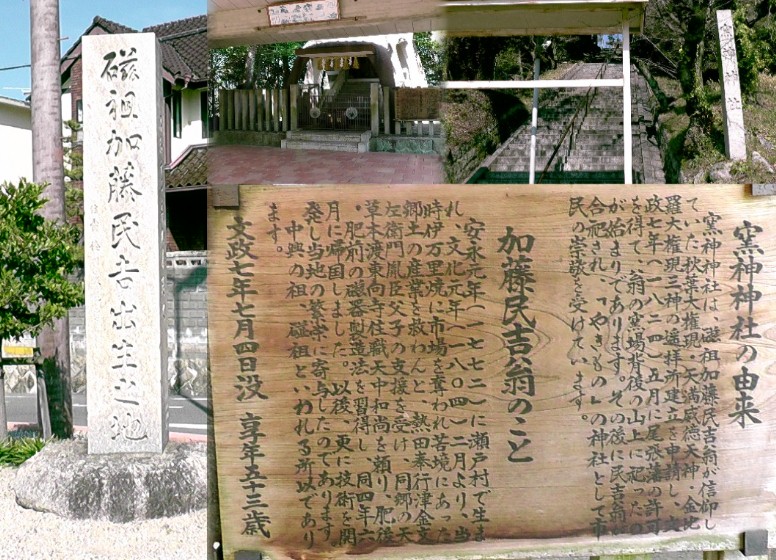 磁祖加藤民吉出生之地
窯神神社
窯神神社の由来
窯神神社は、磁祖加藤民吉翁が信仰し
ていた秋葉大権現・天満威徳天神・金比
羅大権現三神の遥拝所建立を申請し、文
政七年(一八二四)五月に尾張藩の許可
を得て、翁の窯場背後の山上に祀ったの
が始まりであります。その後に民吉翁が
合祀され、「やきもの」の神社として市
民の崇敬を受けています。
加藤民吉翁のこと
安永元年(一七七二)に瀬戸村で生ま
れ、文化元年(一八〇四)二月より、当
時伊万里焼に市場を奪われ苦境にあった
郷土の産業を救わんと、熱田奉行津金文
左衛門胤臣父子の支援を受け、同郷の天
草本渡東向寺住職天中和尚を頼り、肥後
・肥前の磁器製造法を習得し、同四年六
月に帰国しました。以後、更に技術を開
発し当地の繁栄に寄与したのであります。
中興の祖、磁祖といわれる所以であり
ます。
文政七年七月四日没 享年五十三歳